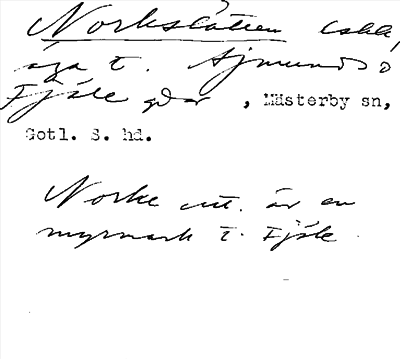 Norkslåtten kall,
äga t. Ajmunds o
Fjäle gdar, Mästerby sn,
Gotl. S. hd.
Norke utt. är en
myrmark t. Fjäle